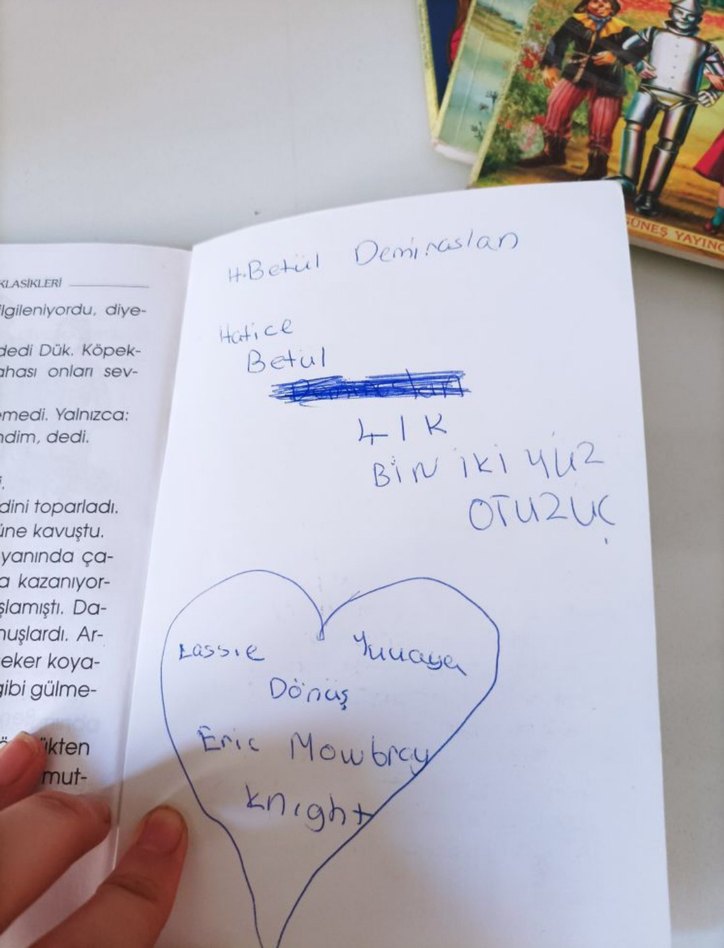 KLASİKLERİ
ilgileniyordu, diye-
dedi Dük. Köpek-
ahası onları sev-
emedi. Yalnızca:
ndim, dedi.
dini toparladı.
üne kavuştu.
yanında ça-
a kazanıyor-
şlamıştı. Da-
nuşlardı. Ar-
eker koya-
gibi gülme-
ükten
mut-
H.Betül Demiraslan
Hatice
Betül
4/K
BİN İKİ YÜZ
OTUZÜÇ
Lassie Yuvaya
Dönüş
Eric Mowbray
Knight
GÜNEŞ YAYINC